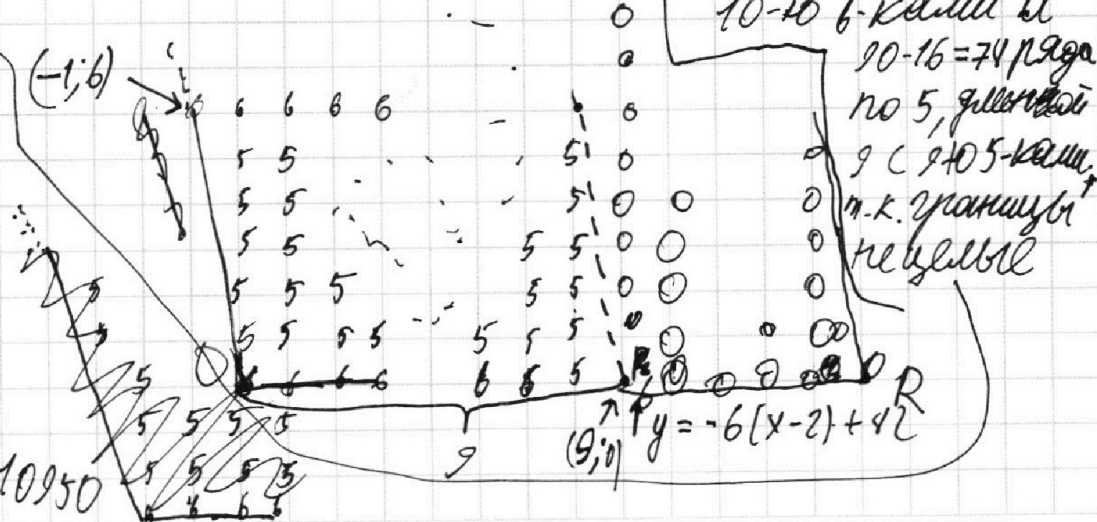 10-ю 6-ками и
90-16=74 ряда
по 5, длиной
9 с 9-ю 5-ками,
т.к. границы
нецелые
(-1;6)
6 6 6 6
5 5 5
5 5 5
5 5 5 5
5 5 5 5 5
5 5 5 5 5 5 5
6 6 6 6 6 6 5
R
y = -6(x-2)+42
(9;0)
9
5
5
5
5 5 5 5
5 5 5 5
10950
6 6 6 6